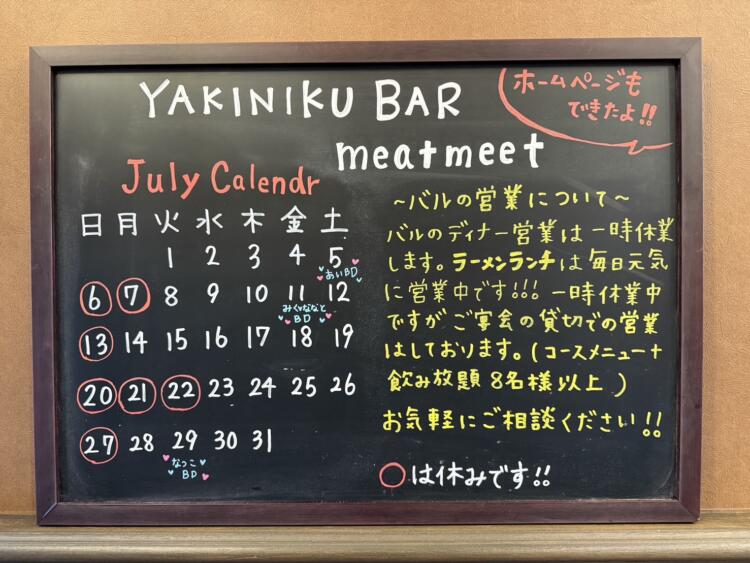 YAKINIKU BAR
meatmeet
ホームページも
できたよ!!
July Calendr
日 月 火 水 木 金 土
1 2 3 4 5
あいBD
6 7 8 9 10 11 12
みく♡ななと
BD
13 14 15 16 17 18 19
20 21 22 23 24 25 26
27 28 29 30 31
なつこ
BD
~バルの営業について~
バルのディナー営業は一時休業
します。ラーメンランチは毎日元気
に営業中です!!! 一時休業中
ですがご宴会の貸切での営業
はしております。(コースメニュー+
飲み放題 8名様以上 )
お気軽にご相談ください!!
○は休みです!!